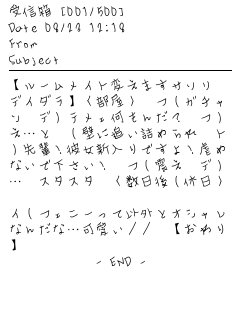 受信箱 [001/500]
Date 08/23 12:18
From
Subject
【ルームメイト変えますサソリ
デイダラ】〈部屋〉 つ(ガチャ
ン デ)テメェ何もんだ? つ)
え…と 〈壁に追い詰められ ト
)先輩!彼女新入りですよ!虐め
ないで下さい! つ(震え デ)
… スタスタ 〈数日後(休日)

イ(フェニーって以外とオシャレ
なんだな…可愛い// 【おわり
】
- END -